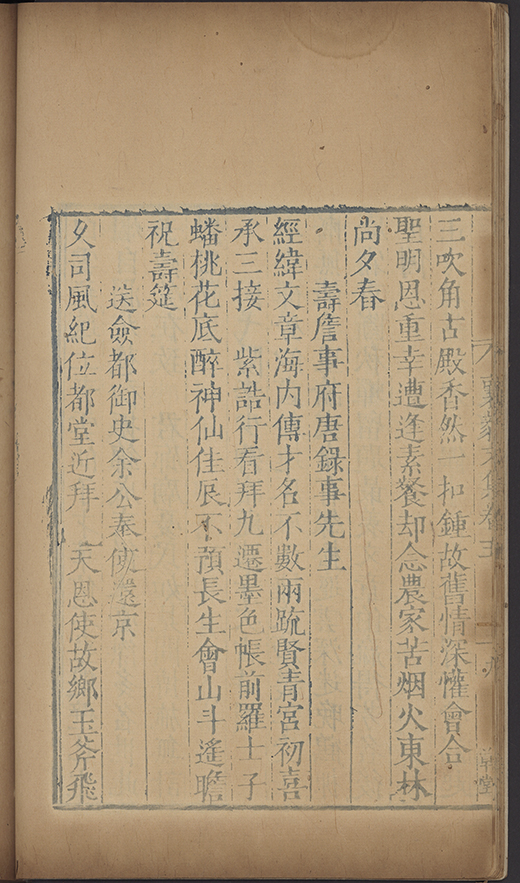 襄毅文集卷五 草堂
三吹角古殿香然一扣鍾故舊情深懽會合
聖明恩重幸遭逢素餐却念農家苦烟火東林
尚夕舂
壽詹事府唐錄事先生
經緯文章海内傳才名不數兩疏賢青宮初喜
承三接 紫誥行看拜九遷墨色帳前羅士子
蟠桃花底醉神仙佳辰不預長生會山斗遙瞻
祝壽筵
送僉都御史余公奉使還京
久司風紀位都堂近拜 天恩使故鄉玉斧飛